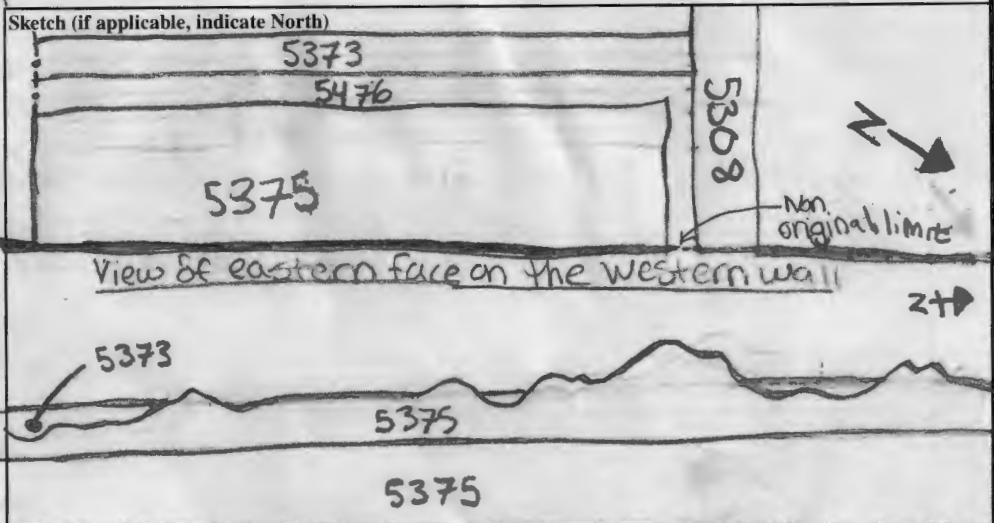 Sketch (if applicable, indicate North)
5373
5476
5308
N
5375
Non
original limit
View of eastern face on the western wall
N
5373
5375
5375